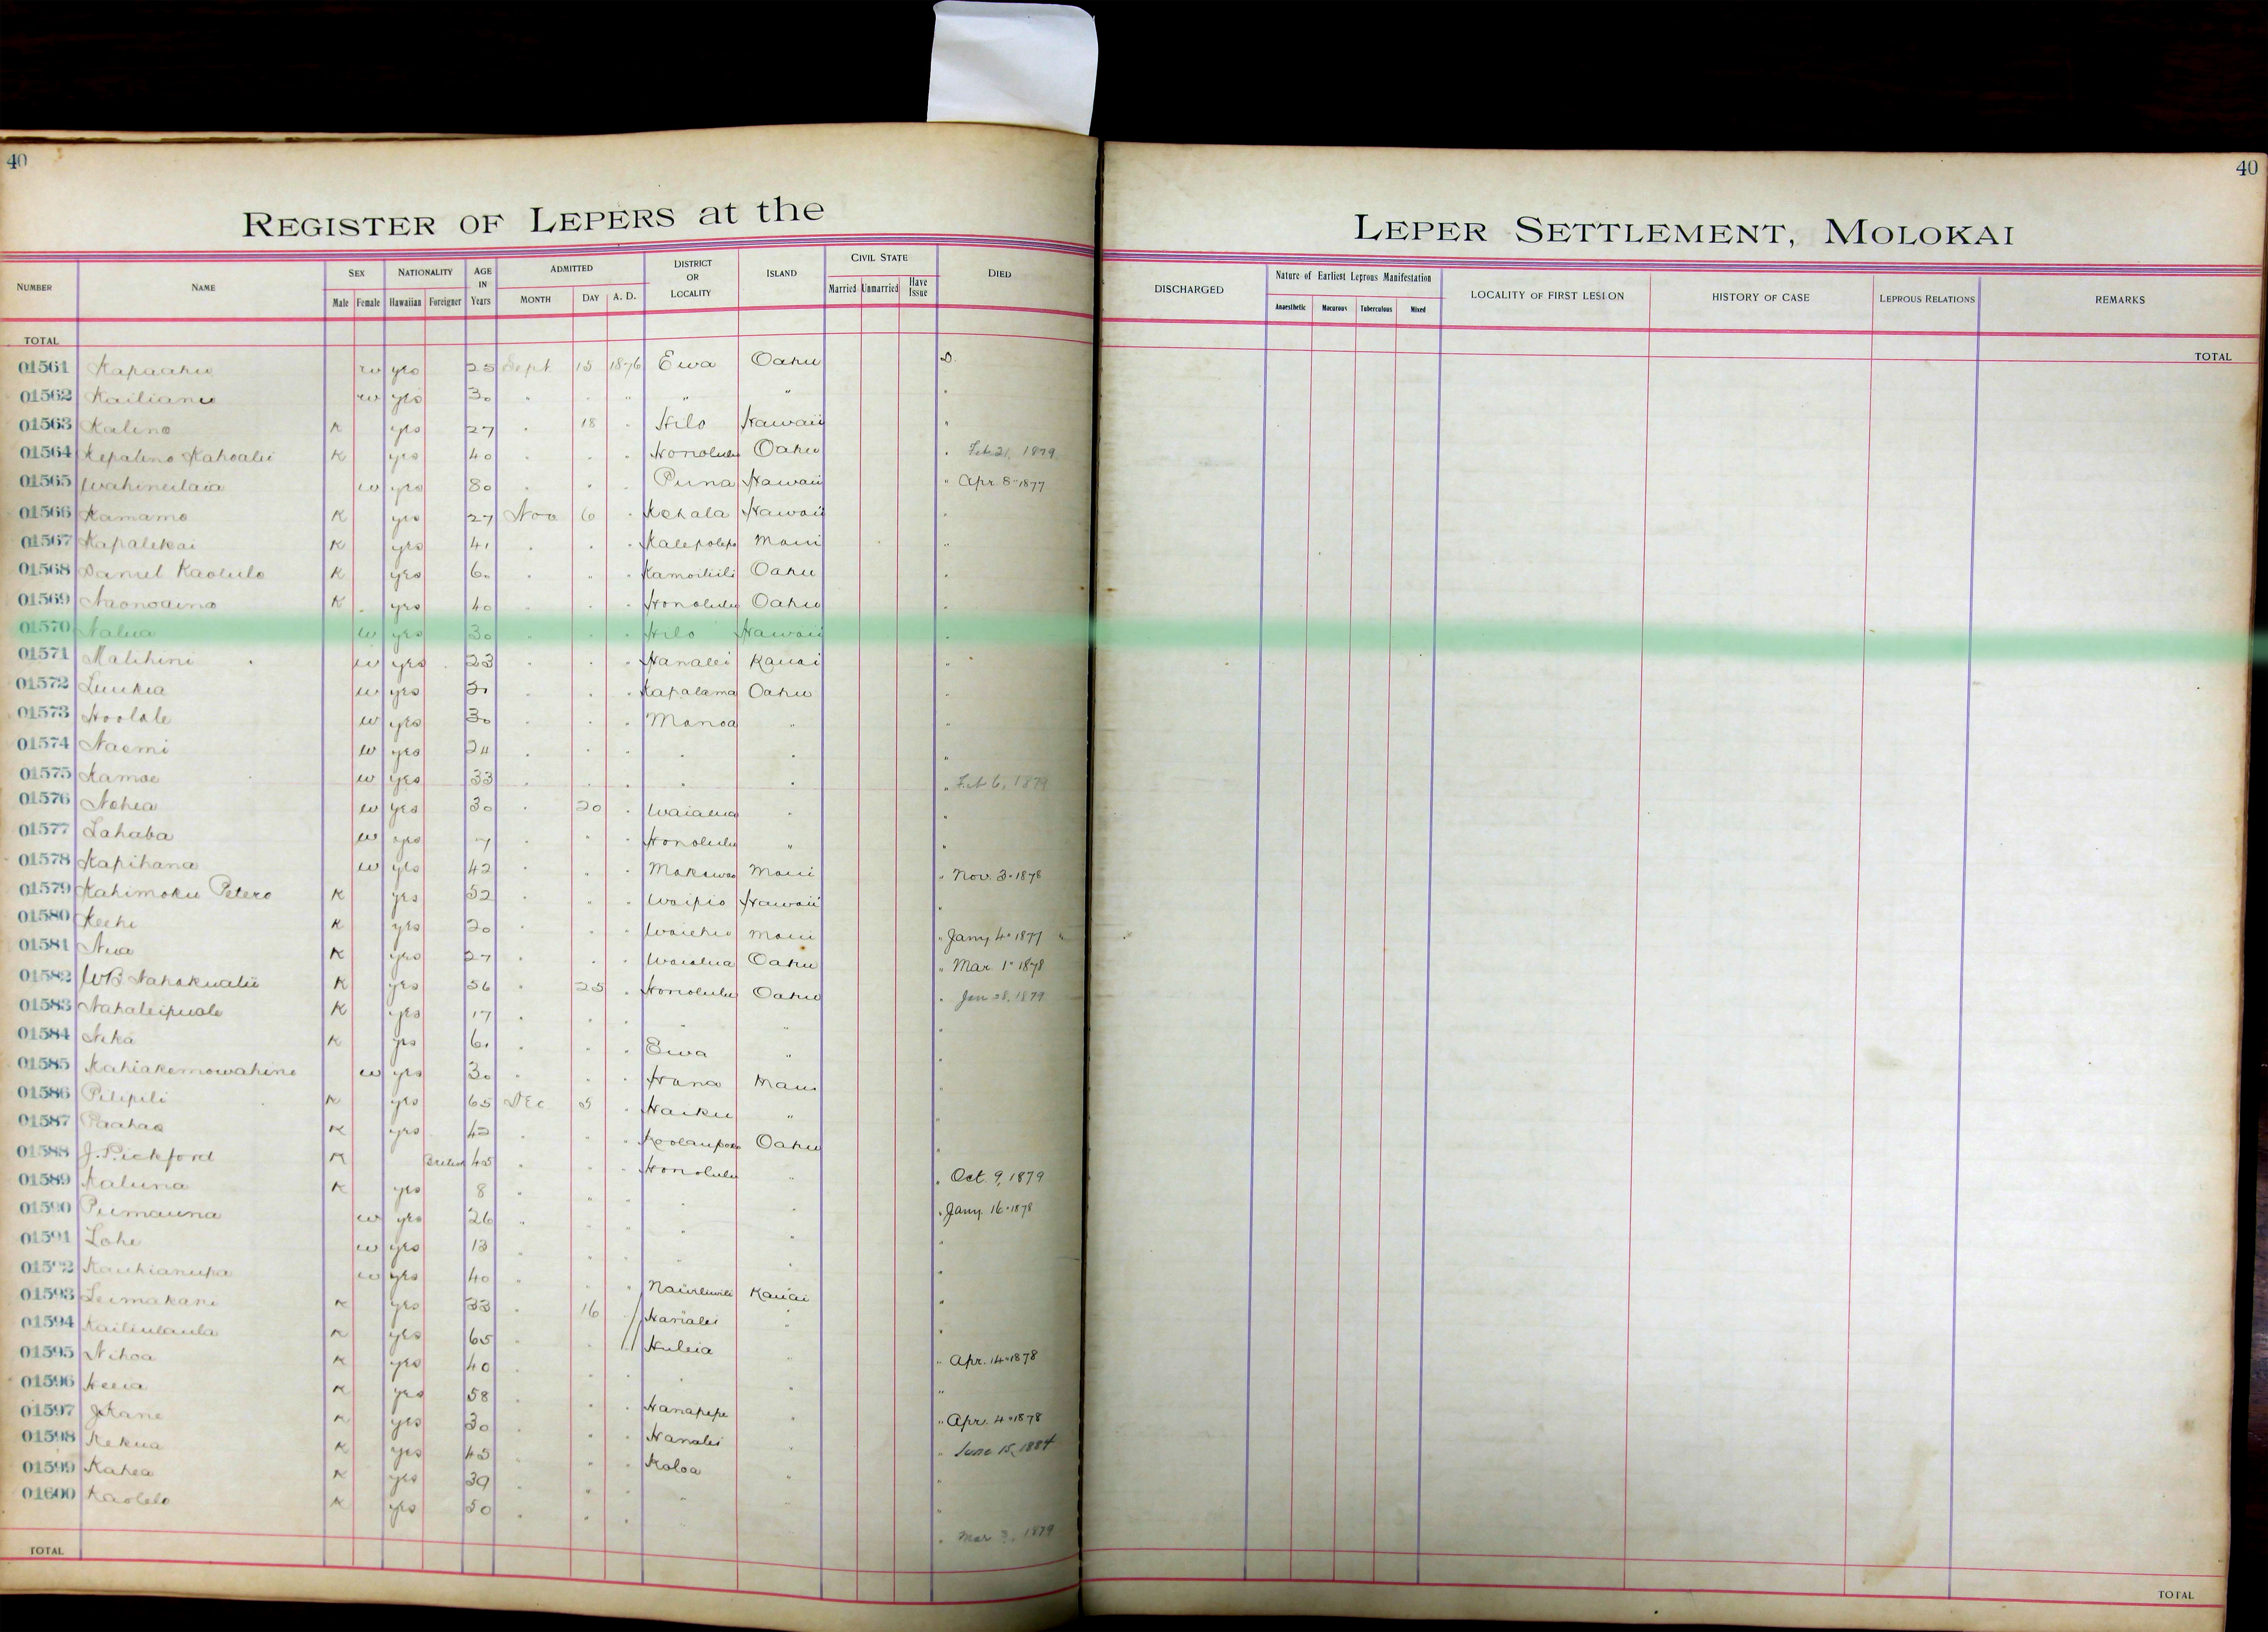 40
40
REGISTER OF LEPERS at the
LEPER SETTLEMENT, MOLOKAI
NUMBER NAME SEX NATIONALITY AGE IN Years ADMITTED DISTRICT OR LOCALITY ISLAND CIVIL STATE DIED
Male Female Hawaiian Foreigner MONTH DAY A. D. Married Unmarried Have Issue
DISCHARGED Nature of Earliest Leprous Manifestation LOCALITY OF FIRST LESION HISTORY OF CASE LEPROUS RELATIONS REMARKS
Anaesthetic Macurous Tuberculous Mixed
TOTAL
TOTAL
01561 Kapaahu w yes 25 Sept 15 1876 Ewa Oahu D.
01562 Kailianu w yes 30 " " " " " "
01563 Kalino K yes 27 " 18 " Hilo Hawaii "
01564 Kepalino Kahoalii K yes 40 " " " Honolulu Oahu " Feb 21, 1879
01565 Wahineilaia w yes 80 " " " Puna Hawaii " Apr. 8 - 1877
01566 Kamamo K yes 27 Nov 6 " Kohala Hawaii "
01567 Kapalekai K yes 41 " " " Kalepolepo Maui "
01568 Daniel Kaolulo K yes 60 " " " Kamoiliili Oahu "
01569 Naonoaina K yes 40 " " " Honolulu Oahu "
01570 Nalua w yes 30 " " " Hilo Hawaii "
01571 Malihini w yes 23 " " " Hanalei Kauai "
01572 Luukia w yes " " " Kapalama Oahu "
01573 Hoolale w yes 30 " " " Manoa " "
01574 Naomi w yes 24 " " " " " "
01575 Kamae w yes 33 " " " " " " Feb 6, 1879
01576 Nohea w yes 30 " 20 " Waialua " "
01577 Lahaba w yes 7 " " " Honolulu " "
01578 Kapihana w yes 42 " " " Makawao Maui " Nov. 3 - 1878
01579 Kahimoku Petero K yes 52 " " " Waipio Hawaii "
01580 Keehi K yes 20 " " " Waiehu Maui " Jany 4 - 1877 "
01581 Niva K yes 27 " " " Waialua Oahu " Mar. 1 - 1878
01582 WB Nahakualii K yes 56 " 25 " Honolulu Oahu " Jan 28, 1879
01583 Nahaleipuale K yes 17 " " " " " "
01584 Nika K yes 61 " " " Ewa " "
01585 Kahiakemowahine w yes 30 " " " Hana Maui "
01586 Pilipili K yes 65 Dec 5 " Haiku " "
01587 Paahao K yes 42 " " " Koolaupoko Oahu "
01588 J. Pickford K British 45 " " " Honolulu " " Oct. 9, 1879
01589 Kaluna K yes 8 " " " " " " Jany 16 - 1878
01590 Puimauna w yes 26 " " " " " "
01591 Lohe w yes 13 " " " " " "
01592 Kauhianupa w yes 40 " " " Nawiliwili Kauai "
01593 Leimakani K yes 33 " 16 " Hanalei " "
01594 Kailiulaula K yes 65 " " " Huleia " " Apr. 14 - 1878
01595 Nihoa K yes 40 " " " " " "
01596 Heeia K yes 58 " " " Hanapepe " " Apr. 4 - 1878
01597 J Kane K yes 30 " " " Hanalei " " June 15, 1884
01598 Kekua K yes 45 " " " Koloa " "
01599 Kahea K yes 39 " " " " " "
01600 Kaolelo K yes 50 " " " " Mar 3, 1879
TOTAL
TOTAL